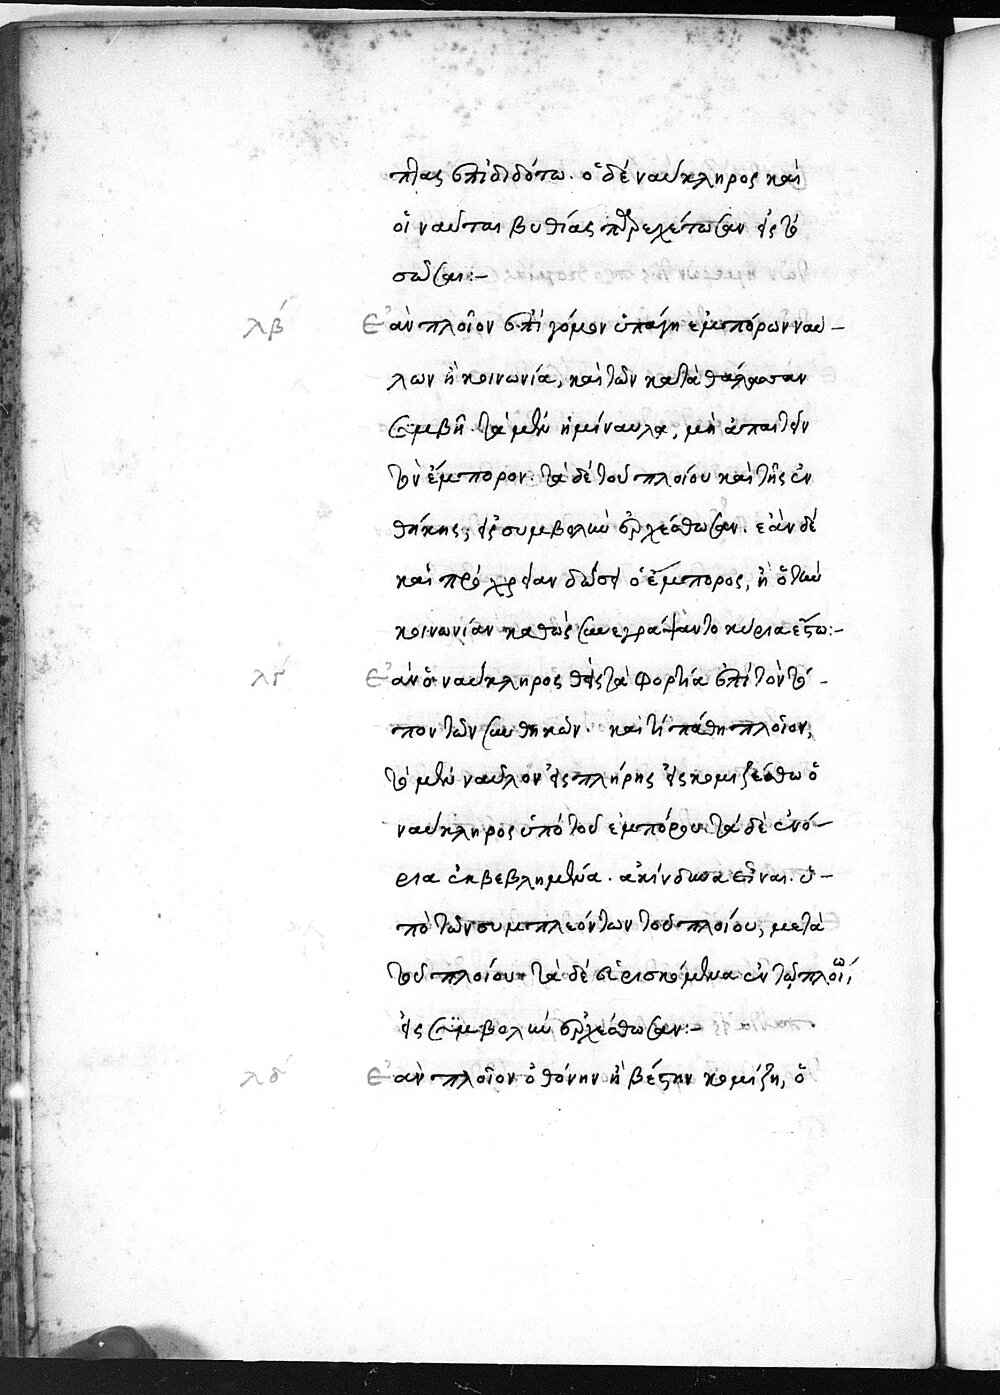 πλας ἐπιδιδότω. ὁ δὲ ναύκληρος καὶ
οἱ ναῦται βυθίας παρεχέτωσαν εἰς τὸ
σῶσαι:-
λβ Ἐὰν πλοῖον ἐπὶ γόμον ὑπάγη ἐμπόρων ναύ-
λων ἢ κοινωνία, καὶ τῶν κατὰ θάλασσαν
συμβῆ. τὰ μὲν ἡμίναυλα, μὴ ἀπαιτεῖν
τὸν ἔμπορον. τὰ δὲ τοῦ πλοίου καὶ τῆς ἐν
θήκης, εἰς συμβολὴν ἐρχέσθωσαν. ἐὰν δὲ
καὶ προχρείαν δώσει ὁ ἔμπορος, ἢ ὅταν
κοινωνίαν καθὼς συνεγράψαντο κύρια ἔστω:-
λγ Ἐὰν ὁ ναύκληρος θεὶς τὰ φορτία ἐπὶ τὸν τό-
πον τῶν συνθηκῶν. καί τι πάθη πλοῖον,
τὸ μὲν ναῦλον εἰς πλήρης εἰσκομιζέσθω ὁ
ναύκληρος ὑπὸ τοῦ ἐμπόρου. τὰ δὲ ἐνό-
ρια ἐκβεβλημένα. ἀκίνδυνα εἶναι. ὑ-
πὸ τῶν συμπλεόντων τοῦ πλοίου, μετὰ
τοῦ πλοίου. τὰ δὲ εὑρισκόμενα ἐν τῷ πλοίῳ,
εἰς συμβολὴν ἐρχέσθωσαν:-
λδ Ἐὰν πλοῖον ὀθόνην ἢ βέστην κομίζη, ὁ